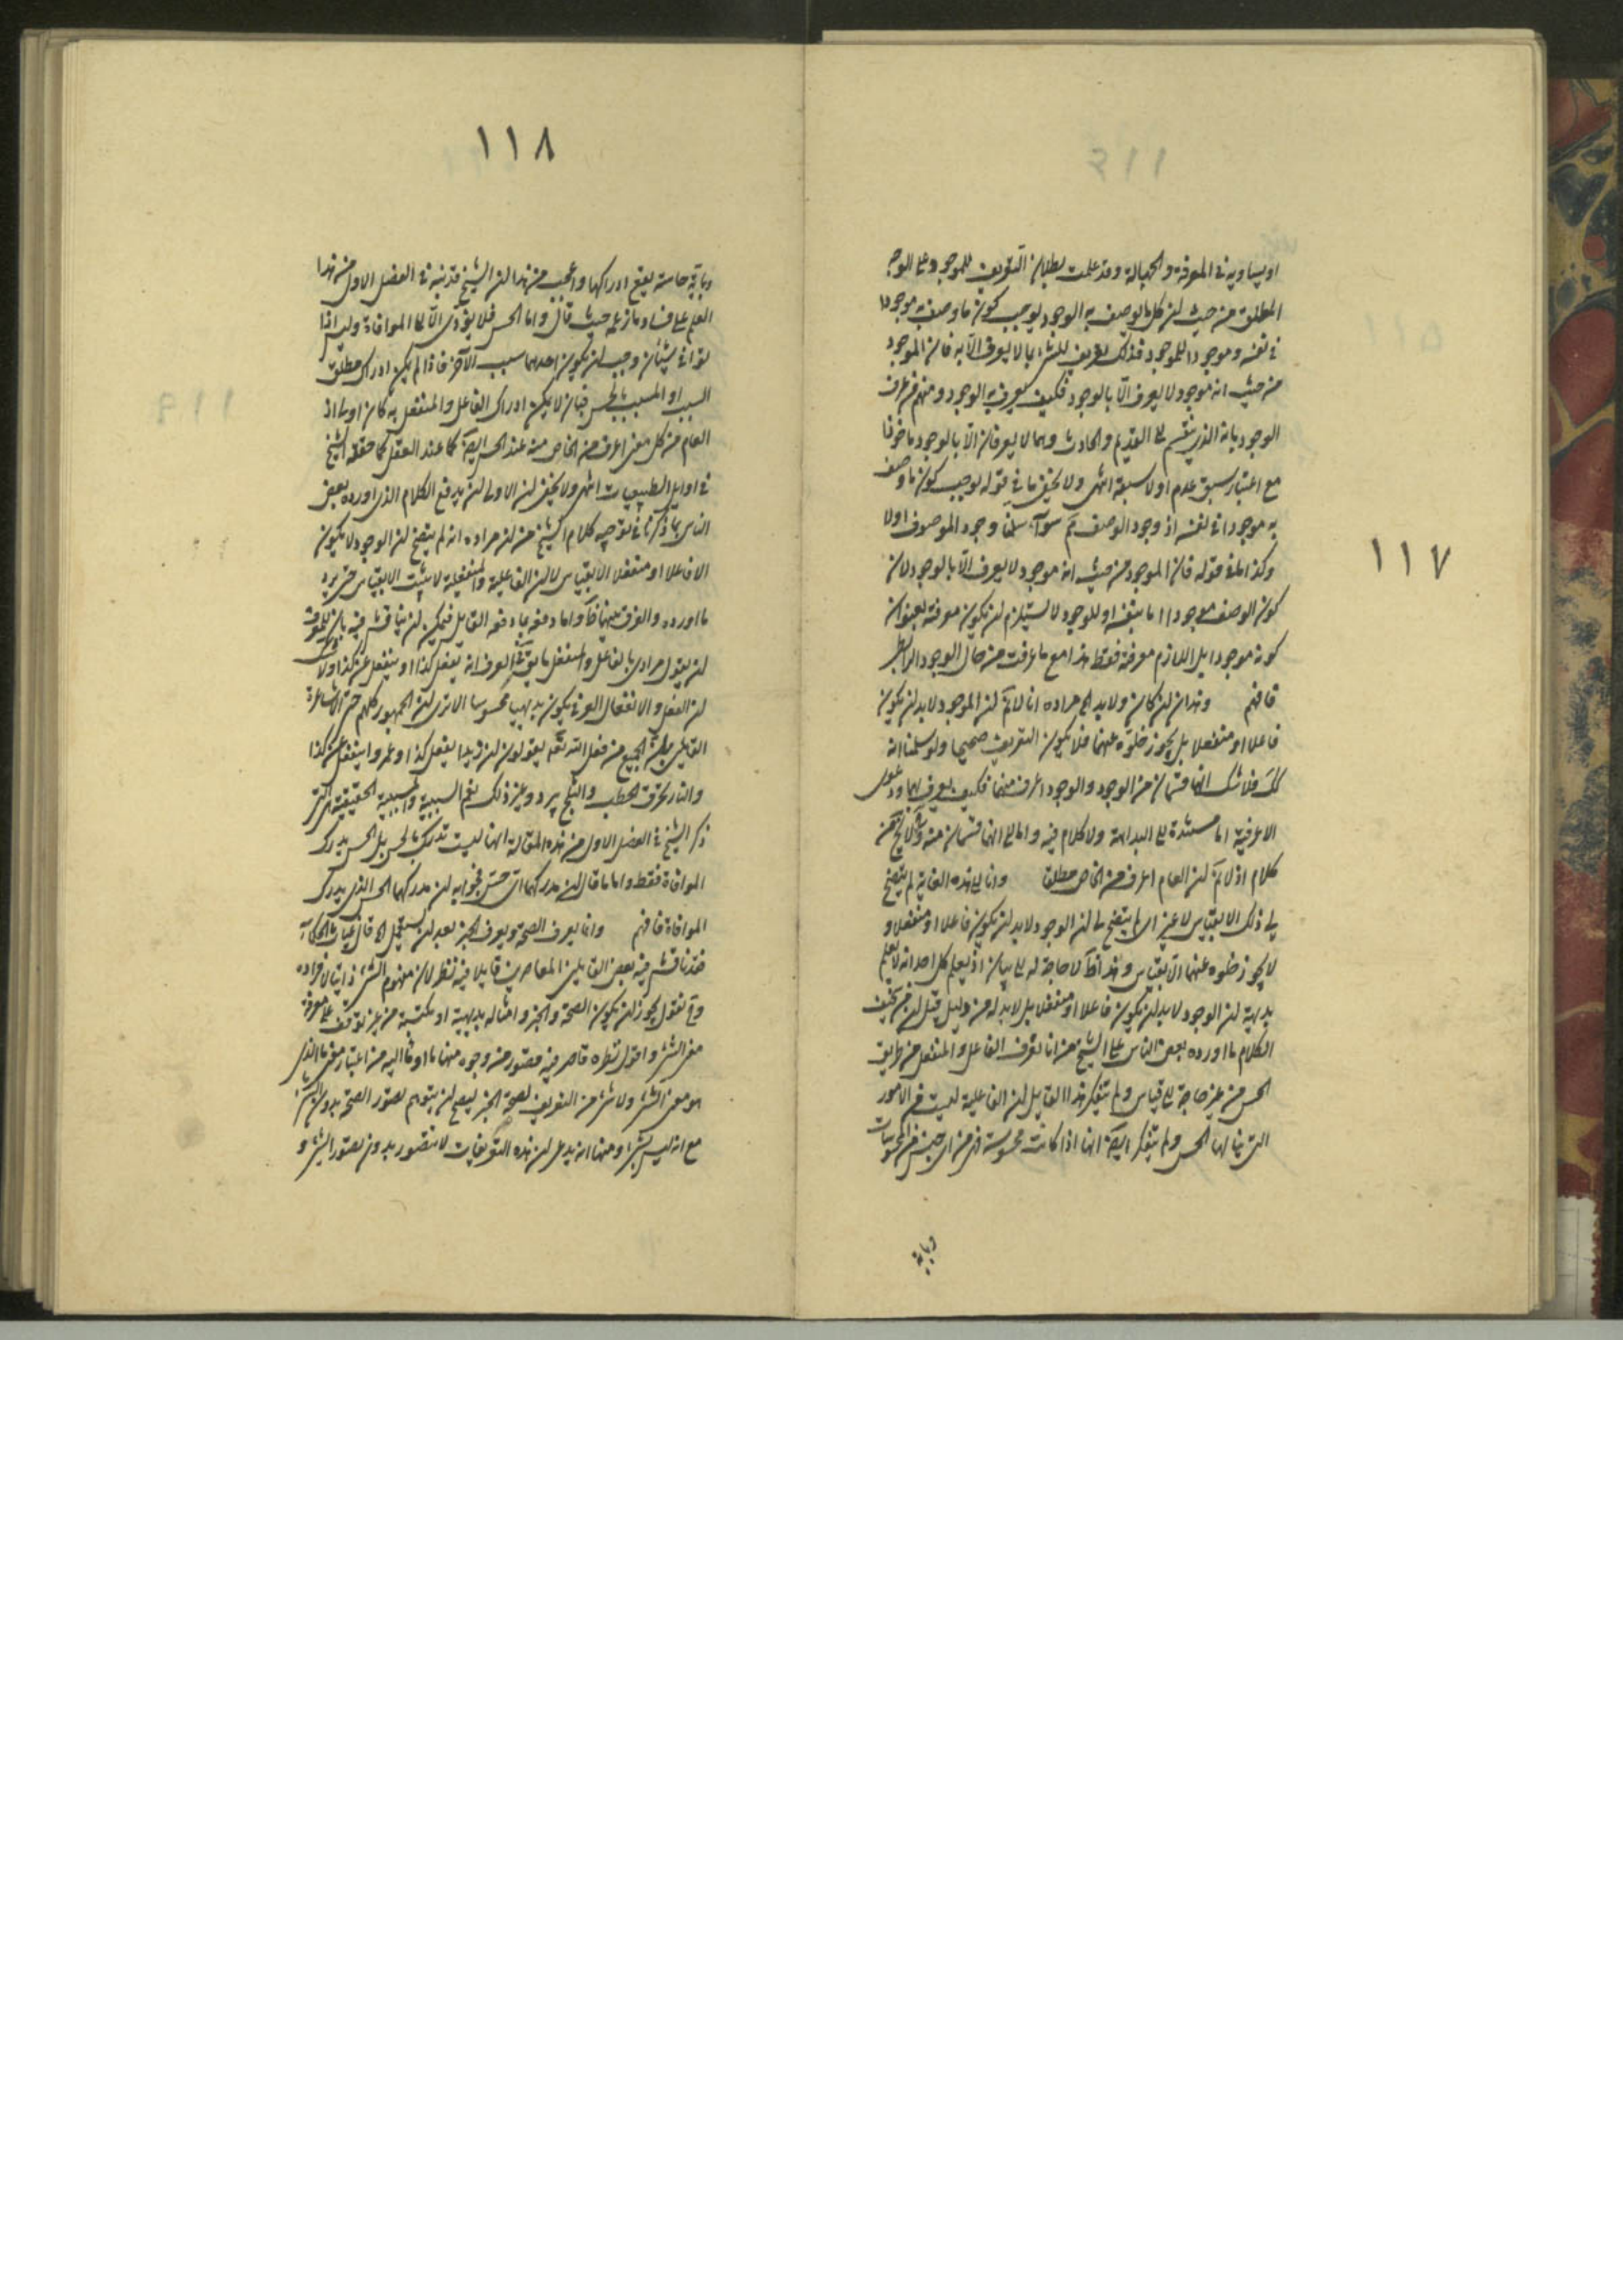 ١١٧
او يساويه في المعرفة والجهالة وقد علمت بطلان التعريف للموجود على الوجه
المطلق من حيث ان كل ما يوصف به الوجود يوجب كون ما وصف به موجودا
في نفسه وموجودا للموجود فذلك تعريف للشئ بما لا يعرف الا به فان الموجود
من حيث انه موجود لا يعرف الا بالوجود فكيف يعرف به الوجود ومنهم من عرف
الوجود بانه الذي ينقسم الى القديم والحادث وهما لا يعرفان الا بالوجود ماخوذا
مع اعتبار سبق عدم او لا سبقه انتهى ولا يخفى ما في قوله يوجب كون ما وصف
به موجودا في نفسه اذ وجود الوصف ثم سواء سلمنا وجود الموصوف او لا
وكذا في قوله فان الموجود من حيث انه موجود لا يعرف الا بالوجود لان
كون الوصف موجودا اما بنفسه او للوجود لا يستلزم ان يكون معرفة بعنوان
كونه موجودا بل اللازم معرفة فقط هذا مع ما عرفت من حال الوجود الرابطى
فافهم وهذا ان كان ولا بد الخ مراده انا لانم ان الموجود لا بد ان يكون
فاعلا او منفعلا بل يجوز خلوه عنهما فلا يكون التعريف صحيحا ولو سلمنا انه
كك فلا شك انهما قسمان من الوجود والوجود اعرف منهما فكيف يعرف بهما ودعوى
الاعرفية اما مستندة الى البداهة ولا كلام فيه واما الى انهما قسمان منه ولا يخ عن
كلام اذ لانم ان العام اعرف من الخاص مطلقا وانا الى هذه الغاية لم يتضح
لى ذلك الا بقياس لا غير اى لم يتضح لى ان الوجود لا بد ان يكون فاعلا او منفعلا و
لا يجوز خلوه عنهما الا بقياس وهذا ظ لا حاجة له الى بيان اذ يعلم كل احد انه لا يعلم
بديهة ان الوجود لا بد ان يكون فاعلا او منفعلا بل لا بد له من دليل قيل ان من سخيف
الكلام ما اورده بعض الناس على الشيخ من انا نعرف الفاعل والمنفعل من طريق
الحس من غير حاجة الى قياس ولم يتفكر هذا القايل ان الفاعلية ليست من الامور
التي ينالها الحس ولم يتفكر ايضا انها اذا كانت محسوسة فمن اى جنس من المحسوسات
وباية
١١٨
وباية حاسة يقع ادراكها واعجب من هذا ان الشيخ قد نبه في الفصل الاول من هذا
العلم على فساد ما زعمه حيث قال واما الحس فلا يؤدى الا الى الموافاة وليس اذا
توافى شيئان وجب ان يكون احدهما سبب الآخر فاذا لم يكن ادراك مطلق
السبب او المسبب بالحس فبان لا يكن ادراك الفاعل والمنفعل به كان اولى اذ
العام من كل معنى اعرف من الخاص منه عند الحس ايضا كما عند العقل كما حققه الشيخ
في اوايل الطبيعيات انتهى ولا يخفى ان الاولى ان يدفع الكلام الذى اورده بعض
الناس بما ذكرنا في توجيه كلام الشيخ من ان مراده انه لم يتضح ان الوجود لا يكون
الا فاعلا او منفعلا الا بقياس لا ان الفاعلية والمنفعلية لا يثبت الا بقياس حتى يرد
ما اورده والفرق بينهما ظ واما دفعه بما دفعه القايل فيمكن ان يناقش فيه بان للمعرف
ان يقول مرادى بالفاعل والمنفعل ما يق في العرف انه يفعل كذا او ينفعل عن كذا ولا شك
ان الفعل والانفعال العرفى يكون بديهيا محسوسا الا ترى ان الجمهور كلهم حتى الاشاعرة
القايلين بان الجميع من فعل الله تعه يقولون ان زيدا يفعل كذا وعمروا ينفعل عن كذا
والنار تحرق الحطب والثلج يبرد وغير ذلك نعم السببية والمسببية الحقيقية التى
ذكر الشيخ في الفصل الاول من هذه المقالة انها ليست تدرك بالحس بل الحس يدرك
الموافاة فقط واما ما قال ان مدركهما اى حس فجوابه ان مدركهما الحس الذى يدرك
الموافاة فافهم وانما يعرف الصحة ويعرف الخبر بعد ان يستعمل الخ قال غياث الحكماء
قد ناقش فيه بعض القايلين المعاصرين قايلا فيه نظر لان مفهوم الشئ ذاتى لافراده
وح نقول يجوز ان يكون الصحة والخبر وامثاله بديهية او مكتسبة من غير توقف على معرفة
معنى الشئ واقول نظره قاصر فيه قصور من وجوه منها ما اومأنا اليه من اعتبار معنى ما الذى
هو معنى الشئ ولا شئ من التعريف لصحة الخبر ليصح ان يتوهم تصور الصحة بدون الشئ
مع انه ليس بشئ ومنها انه يدعى ان هذه التعريفات لا تتصور بدون تصور الشئ و